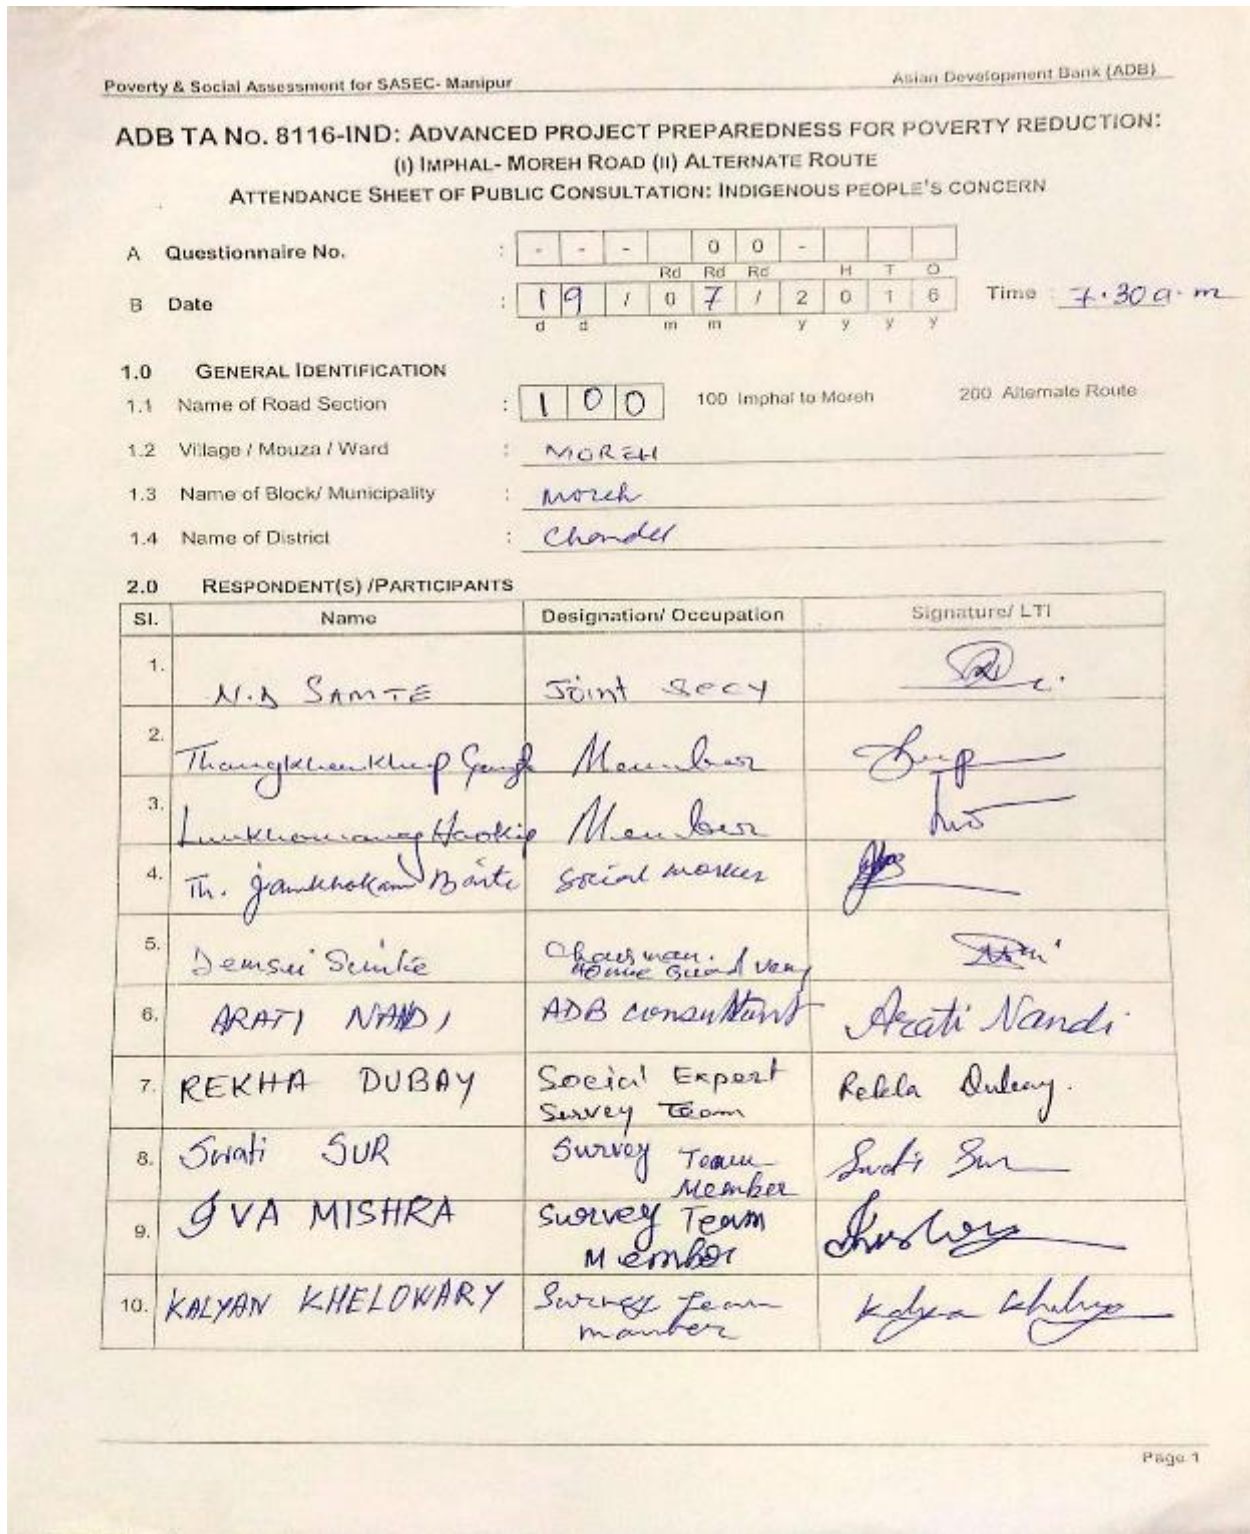 Poverty & Social Assessment for SASEC- Manipur Asian Development Bank (ADB)
ADB TA No. 8116-IND: ADVANCED PROJECT PREPAREDNESS FOR POVERTY REDUCTION:
(I) IMPHAL- MOREH ROAD (II) ALTERNATE ROUTE
ATTENDANCE SHEET OF PUBLIC CONSULTATION: INDIGENOUS PEOPLE'S CONCERN
A Questionnaire No. : - - - 0 0 -
Rd Rd Rd H T O
B Date : 1 9 / 0 7 / 2 0 1 6 Time : 7.30 a.m
d d m m y y y y
1.0 GENERAL IDENTIFICATION
1.1 Name of Road Section : 1 0 0 100 Imphal to Moreh 200 Alternate Route
1.2 Village / Mouza / Ward : MOREH
1.3 Name of Block/ Municipality : Moreh
1.4 Name of District : Chandel
2.0 RESPONDENT(S) /PARTICIPANTS
Sl. Name Designation/ Occupation Signature/ LTI
1. N.D SAMTE Joint Secy
2. Thangkhenkhup Member
3. Haokip Member
4. Th. Jamkhokam Baite Social worker
5. Chairman.
6. ARATI NANDI ADB consultant Arati Nandi
7. REKHA DUBAY Social Expert Rekha Dubay.
Survey Team
8. Swati SUR Survey Team Swati Sur
Member
9. IVA MISHRA Survey Team
Member
10. KALYAN KHELOWARY Survey Team Kalyan
manber
Page 1